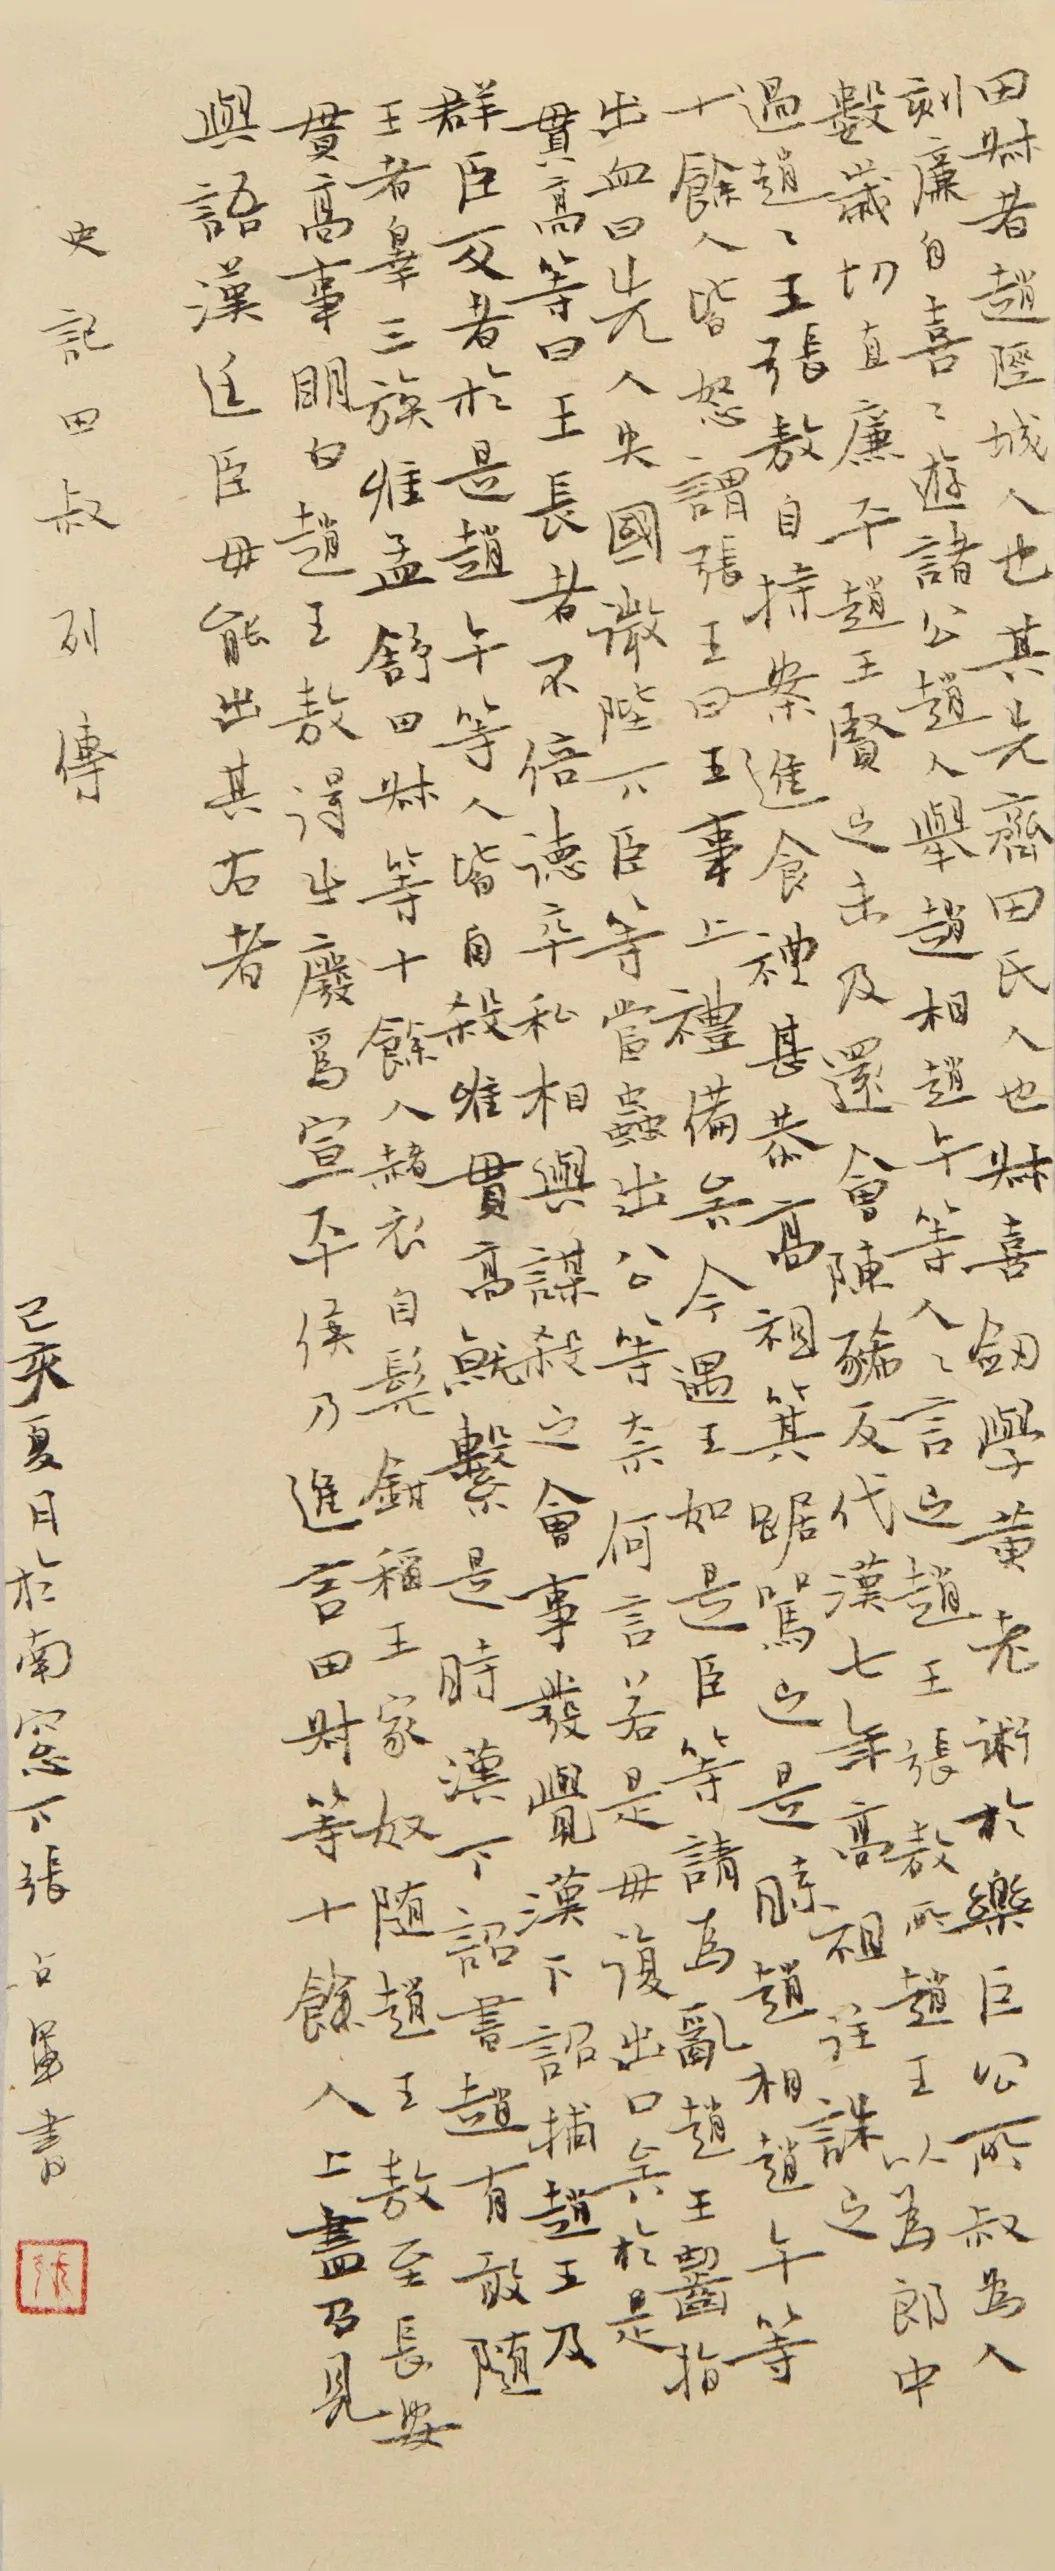 田叔者趙陘城人也其先齊田氏人也叔喜劒學黃老術於樂巨公所叔為人
刻廉自喜〻遊諸公趙人舉趙相趙午等人〻言之趙王張敖所趙王以為郎中
數歲切直廉平趙王賢之未及遷會陳豨反代漢七年高祖往誅之
過趙〻王張敖自持案進食禮甚恭高祖箕踞罵之是時趙相趙午等
十餘人皆怒謂張王曰王事上禮備矣今遇王如是臣等請為亂趙王齧指
出血曰先人失國微陛下臣等當蟲出公等奈何言若是毋復出口矣於是
貫高等曰王長者不倍德卒私相與謀殺之會事發覺漢下詔捕趙王及
群臣反者於是趙午等人皆自殺唯貫高就繫是時漢下詔書趙有敢隨
王者辠三族唯孟舒田叔等十餘人赭衣自髡鉗稱王家奴隨趙王敖至長安
貫高事明白趙王敖得出廢為宣平侯乃進言田叔等十餘人上盡召見
與語漢廷臣毋能出其右者
史記田叔列傳
己亥夏日於南窓下張占軍書
張